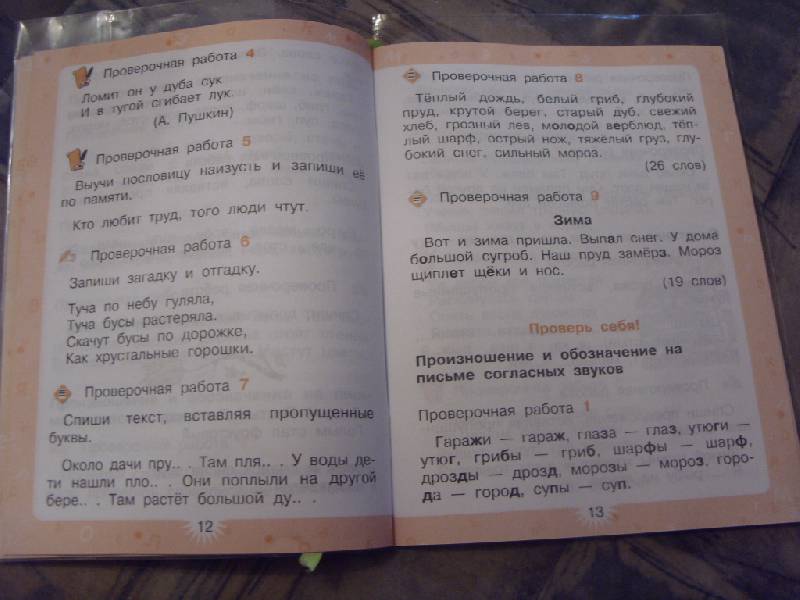 Проверочная работа 4
Ломит он у дуба сук
И в тугой сгибает лук.
(А. Пушкин)
Проверочная работа 5
Выучи пословицу наизусть и запиши её
по памяти.
Кто любит труд, того люди чтут.
Проверочная работа 6
Запиши загадку и отгадку.
Туча по небу гуляла,
Туча бусы растеряла.
Скачут бусы по дорожке,
Как хрустальные горошки.
Проверочная работа 7
Спиши текст, вставляя пропущенные
буквы.
Около дачи пру.. . Там пля.. . У воды де-
ти нашли пло.. . Они поплыли на другой
бере.. . Там растёт большой ду.. .
12
Проверочная работа 8
Тёплый дождь, белый гриб, глубокий
пруд, крутой берег, старый дуб, свежий
хлеб, грозный лев, молодой верблюд, тёп-
лый шарф, острый нож, тяжёлый груз, глу-
бокий снег, сильный мороз.
(26 слов)
Проверочная работа 9
Зима
Вот и зима пришла. Выпал снег. У дома
большой сугроб. Наш пруд замёрз. Мороз
щиплет щёки и нос.
(19 слов)
Проверь себя!
Произношение и обозначение на
письме согласных звуков
Проверочная работа 1
Гаражи — гараж, глаза — глаз, утюги —
утюг, грибы — гриб, шарфы — шарф,
дрозды — дрозд, морозы — мороз, горо-
да — город, супы — суп.
13